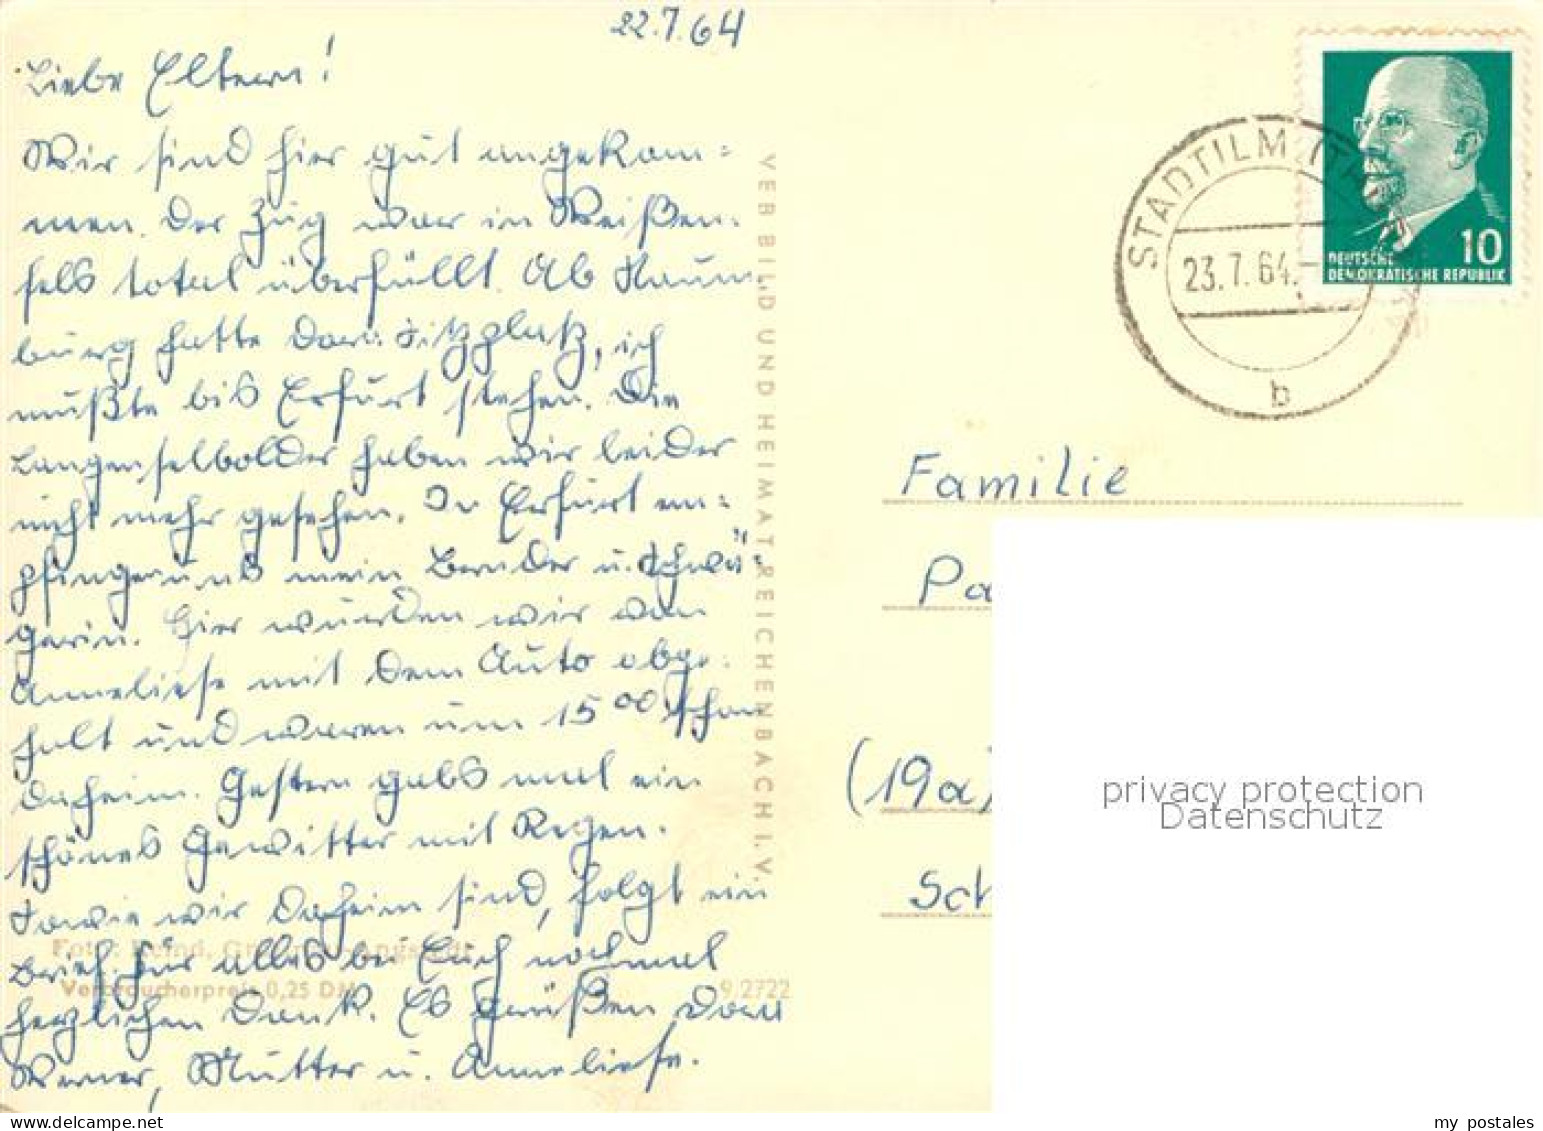 22.7.64
Liebe Eltern!
Wir sind hier gut angekom=
men. Der Zug war in Weißen-
fels total überfüllt. Ab Naum-
burg hatte Dora Sitzplatz, ich
mußte bis Erfurt stehen. Die
Langenselbolder haben wir leider
nicht mehr gesehen. In Erfurt em=
pfingen uns mein Bruder u. Schwä=
gerin. Hier wurden wir von
Anneliese mit dem Auto abge-
holt und waren um 15 00 schon
daheim. Gestern gabs mal ein
schönes Gewitter mit Regen.
Sowie wir daheim sind, folgt ein
Brief. Für alles bei Euch nochmal
herzlichen Dank. Es grüßen Dora
Werner, Mutter u. Anneliese.
Verbraucherpreis 0,25 DM
9.2722
VEB BILD UND HEIMAT REICHENBACH I. V.
STADTILM (TH
23.7.64.-
b
10
DEUTSCHE
DEMOKRATISCHE REPUBLIK
Familie
Pa
(19a)
Sch
privacy protection
Datenschutz
my postales